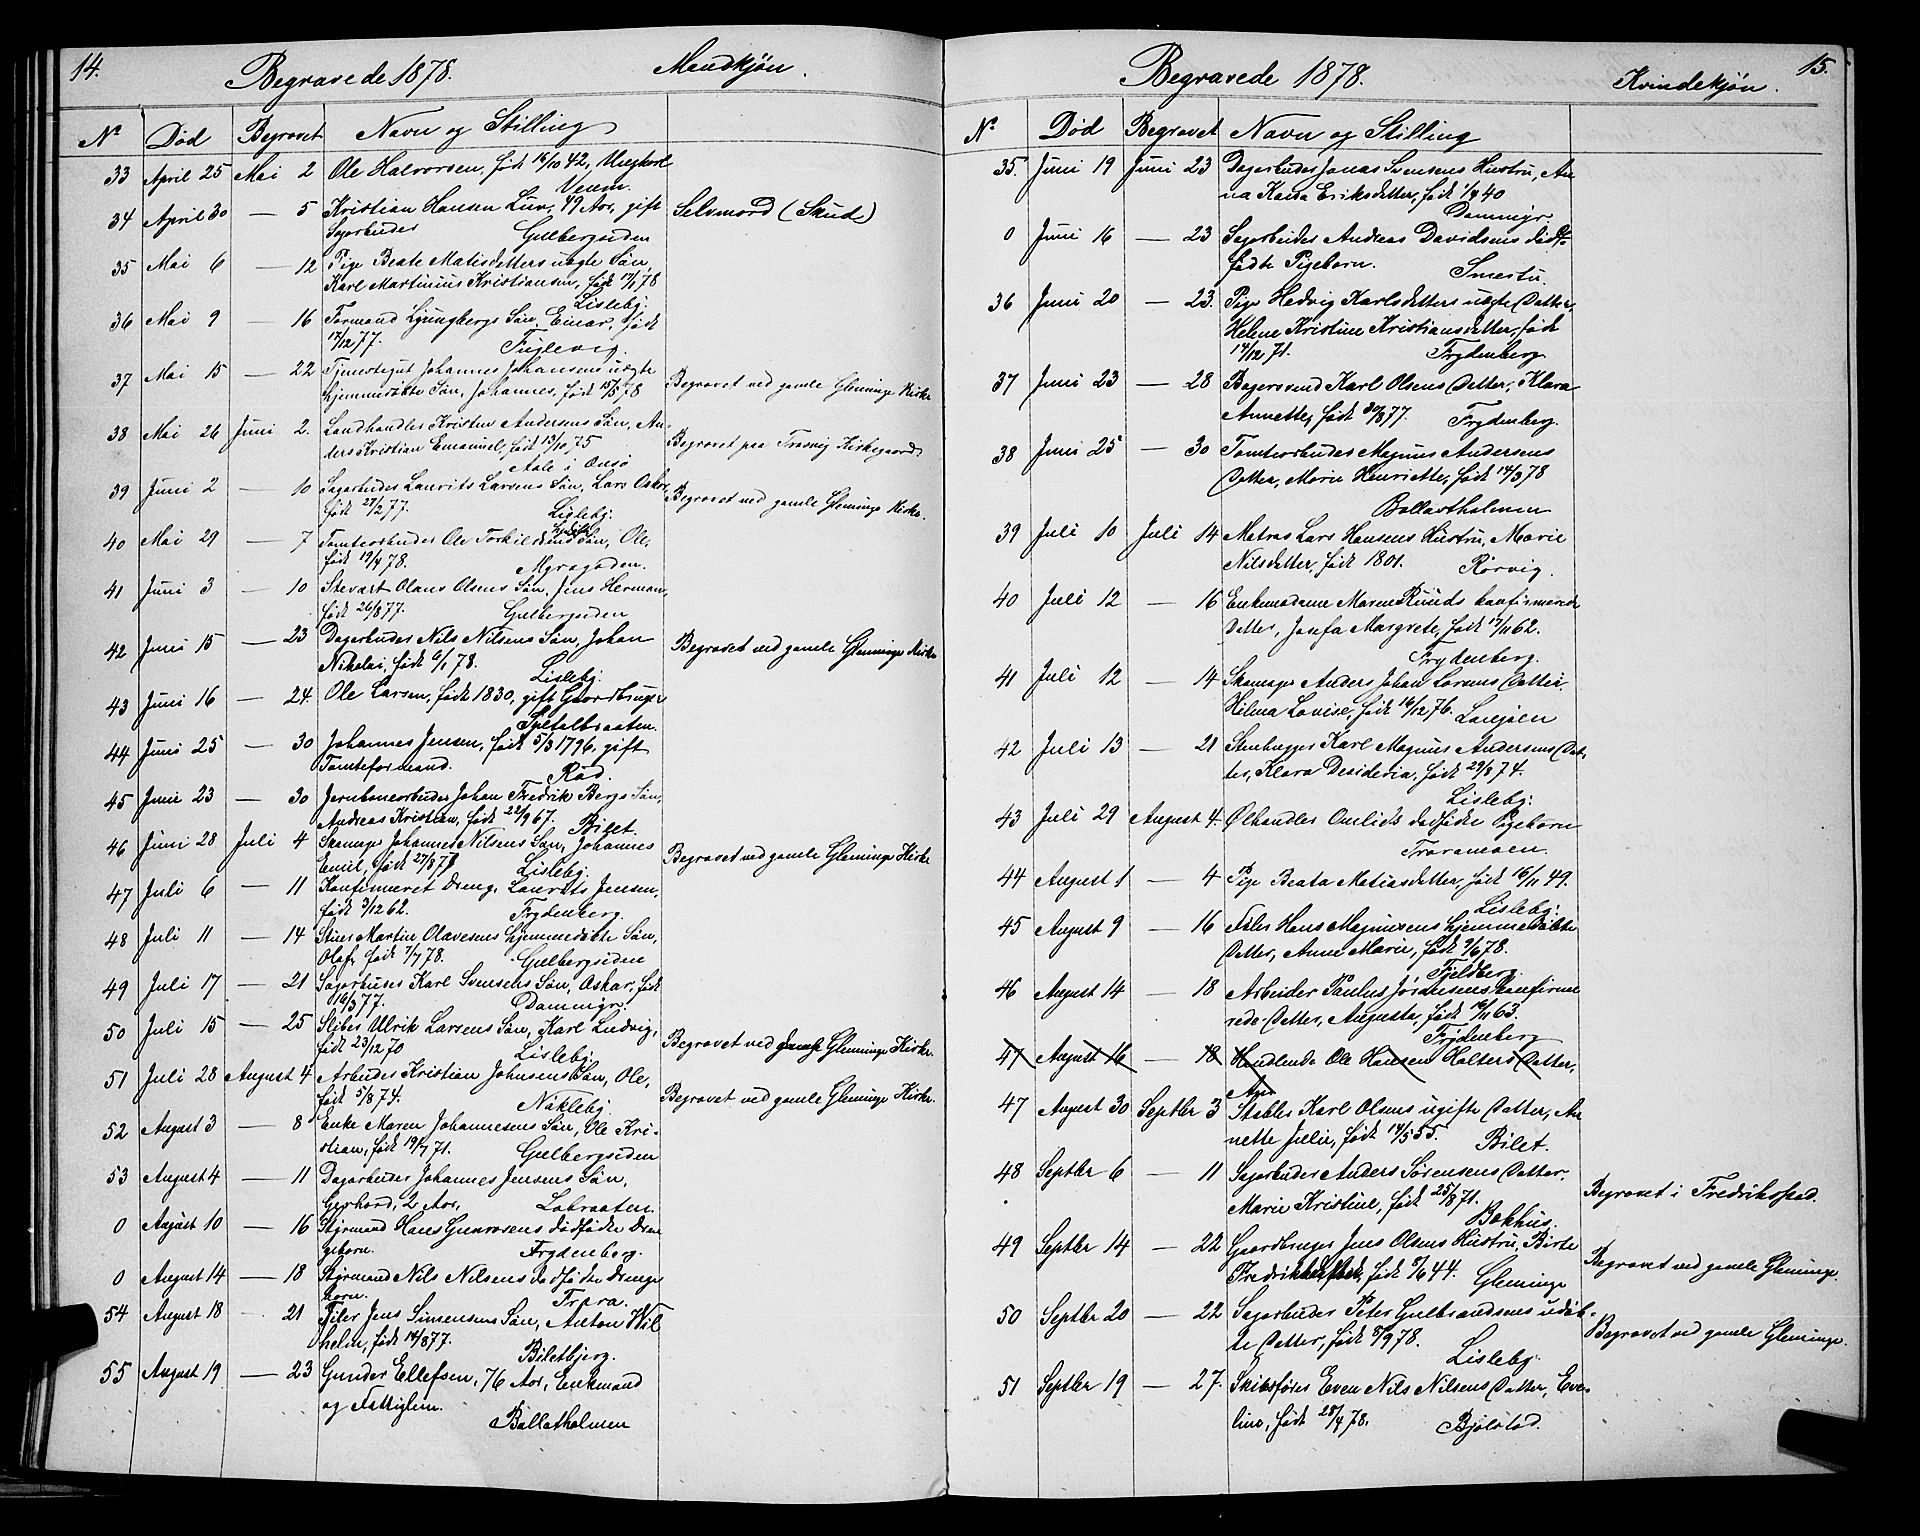 14.
Begravede 1878. Mandkjøn.
No Død Begravet Navn og Stilling
33 April 25 Mai 2 Ole Halvorsen, født 16/10 42, Ungkarl
Veum.
34 April 30 — 5 Kristian Hansen Lun, 49 Aar, gift Selvmord (Skud)
Sagarbeider Gulbergsiden
35 Mai 6 — 12 Pige Beate Matisdatters uægte Søn,
Karl Martinius Kristiansen, født 17/1 78
Lisleby.
36 Mai 9 — 16 Formand Ljungbergs Søn, Einar, født
17/12 77. Fuglevig.
37 Mai 15 — 22 Tjenestegut Johannes Johansens uægte
hjemmedøbte Søn, Johannes, født 15/5 78 Begravet ved gamle Glemminge Kirke
38 Mai 26 Juni 2. Landhandler Kristen Andersens Søn, An-
ders Kristian Emanuel, født 13/10 75 Begravet paa Trosvig Kirkegaard
Aale i Onsø
39 Juni 2 — 10 Sagarbeider Laurits Larsens Søn, Lars Oskar
født 27/2 77. Lisleby. Begravet ved gamle Glemminge Kirke.
40 Mai 29 — 7 Tomtearbeider Ole Torkildsens Søn, Ole,
født 19/4 78. Myragaden.
41 Juni 3 — 10 Stevart Olaus Olsens Søn, Jens Herman,
født 26/8 77. Gulbergsiden
42 Juni 15 — 23 Dagarbeider Nils Nilsens Søn, Johan
Nikolai, født 6/1 78. Lisleby. Begravet ved gamle Glemminge Kirke
43 Juni 16 — 24. Ole Larsen, født 1830, gift Gaardbruger
Spetalbraaten.
44 Juni 25 — 30 Johannes Jensen, født 5/3 1796, gift
Tomteformand. Rød.
45 Juni 23 — 30 Jernbanearbeider Johan Fredrik Bergs Søn,
Andreas Kristian, født 22/9 67. Bilet.
46 Juni 28 Juli 4 Skomager Johannes Nilsens Søn, Johannes
Emil, født 27/3 77 Lisleby. Begravet ved gamle Glemminge Kirke
47 Juli 6 — 11 Konfirmeret Dreng, Laurits Jensen,
født 3/12 62. Frydenberg.
48 Juli 11 — 14 Stuer Martin Olavesens hjemmedøbte Søn,
Olaf, født 7/7 78. Gulbergsiden
49 Juli 17 — 21 Sagarbeider Karl Svensens Søn, Oskar, født
16/3 77. Dammyr.
50 Juli 15 — 25 Sliber Ulrik Larsens Søn, Karl Ludvig,
født 23/12 70 Lisleby. Begravet ved gamle Glemminge Kirke.
51 Juli 28 August 4 Arbeider Kristian Johnsens Søn, Ole,
født 5/8 74. Nøkleby. Begravet ved gamle Glemminge Kirke.
52 August 3 — 8 Enke Maren Johannesens Søn, Ole Kri-
stian, født 19/7 71. Gulbergsiden
53 August 4 — 11 Dagarbeider Johannes Jensens Søn,
Gerhard, 2 Aar, Labraaten.
0 August 10 — 16 Styrmand Hans Gunrosens dødfødte Dren
gebarn. Frydenberg.
0 August 14 — 18 Styrmand Nils Nilsens dødfødte Drenge
barn. Trara.
54 August 18 — 21 Filer Jens Simensens Søn, Anton Wil
helm, født 14/8 77. Biletbjerg.
55 August 19 — 23 Gunder Ellefsen, 76 Aar, Enkmand
og Fattiglem.
Ballatholmen
15.
Begravede 1878. Kvindekjøn.
No Død Begravet Navn og Stilling
35. Juni 19 Juni 23 Dagarbeider Jonas Svensens Hustru, An-
na Kaisa Eriksdatter, født 1/9 40
Dammyr.
0 Juni 16 — 23 Sagarbeider Andreas Davidsens død-
fødte Pigebarn. Smertu.
36 Juni 20 — 23. Pige Hedvig Karlsdatters uægte Datter,
Helene Kristine Kristiansdatter, født
14/12 71. Frydenberg
37 Juni 23 — 28 Bagersvend Karl Olsens Datter, Klara
Annette, født 30/8 77. Frydenberg.
38 Juni 25 — 30 Tomtearbeider Magnus Andersens
Datter, Marie Henriette, født 14/3 78
Ballastholmen
39 Juli 10 Juli 14 Matros Lars Hansens Hustru, Marie
Nilsdatter, født 1801. Rørvig.
40 Juli 12 — 16 Enkemadame Maren Ruuds konfirmerede
Datter, Josefa Margrete, født 17/11 62.
Frydenberg.
41 Juli 12 — 14 Skomager Anders Johan Larsens Datter
Hilma Lovise, født 16/12 76.
42 Juli 13 — 21 Stenhugger Karl Magnus Andersens Dat-
ter, Klara Desideria, født 29/8 74.
Lisleby.
43 Juli 29 August 4. Ølhandler Omlids dødfødte Pigebarn
Traramoen.
44 August 1 — 4 Pige Beata Matiasdatter, født 16/11 49.
Lisleby.
45 August 9 — 16 Filer Hans Magnusens hjemmedøbte
Datter, Anne Marie, født 9/6 78.
Fjeldberg.
46 August 14 — 18 Arbeider Paulus Jørgensens konfirme
rede Datter, Augusta, født 16/11 63.
Frydenberg
47 August 16 — 18 Handlende Ole Hansen Halters Datter,
47 August 30 Septbr 3 Stabler Karl Olsens ugifte Datter, An
nette Julie, født 14/5 55. Bilet.
48 Septbr 6 — 11 Sagarbeider Anders Sørensens Datter,
Marie Kristine, født 25/8 71. Begravet i Fredriksstad.
Bakhus.
49 Septbr 14 — 22 Gaardbruger Jens Olsens Hustru, Birte
Fredriksdatter, født 8/6 44. Glemminge Begravet ved gamle Glemminge.
50 Septbr 20 — 22 Sagarbeider Peter Gulbrandsens udøb-
te Datter, født 8/9 78. Begravet ved gamle Glemminge.
Lisleby.
51 Septbr 19 — 27. Skibsfører Even Nils Nilsens Datter, Eve-
line, født 28/4 78. Bjølstad.